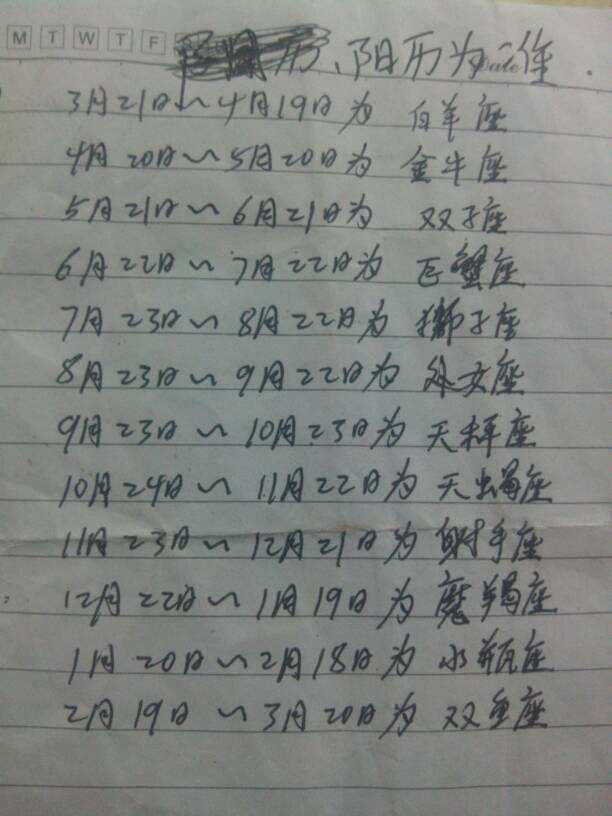 M T W T F
历、阳历为准.
Date
3月21日~4月19日为 白羊座
4月20日~5月20日为 金牛座
5月21日~6月21日为 双子座
6月22日~7月22日为 巨蟹座
7月23日~8月22日为 獅子座
8月23日~9月22日为 处女座
9月23日~10月23日为 天秤座
10月24日~11月22日为 天蝎座
11月23日~12月21日为 射手座
12月22日~1月19日为 魔羯座
1月20日~2月18日为 水瓶座
2月19日~3月20日为 双鱼座